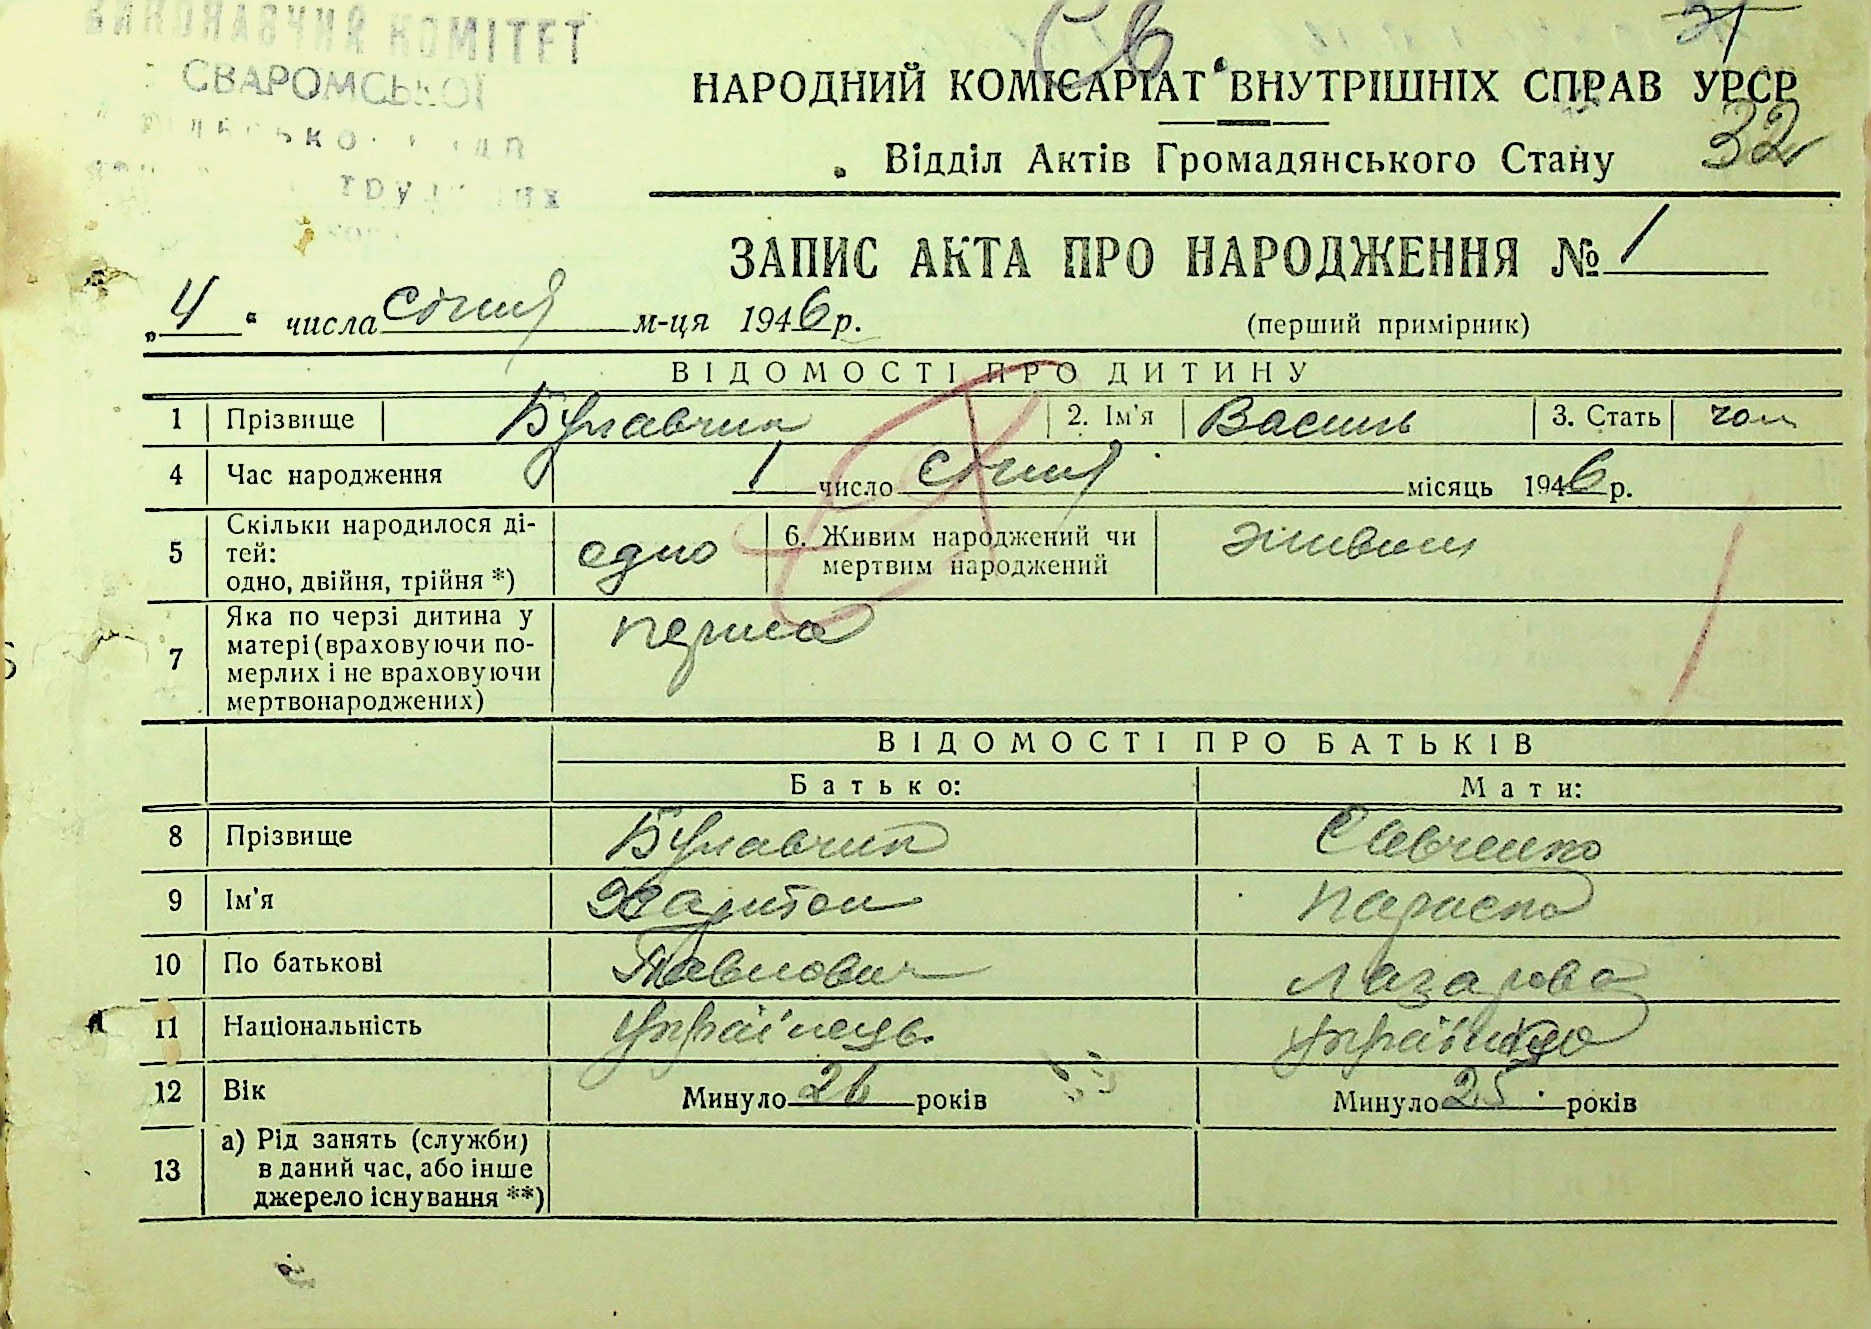 ВИКОНАВЧИЙ КОМІТЕТ
СВАРОМСЬКОЇ
Св.
31
НАРОДНИЙ КОМІСАРІАТ ВНУТРІШНІХ СПРАВ УРСР
Відділ Актів Громадянського Стану 32
ЗАПИС АКТА ПРО НАРОДЖЕННЯ № 1
„4“ числа січня м-ця 1946 р. (перший примірник)
ВІДОМОСТІ ПРО ДИТИНУ
1 Прізвище Булавчик 2. Ім'я Василь 3. Стать чол
4 Час народження 1 число січня місяць 1946 р.
5 Скільки народилося ді-
тей:
одно, двійня, трійня *) одно 6. Живим народжений чи
мертвим народжений живим
7 Яка по черзі дитина у
матері (враховуючи по-
мерлих і не враховуючи
мертвонароджених) перша
ВІДОМОСТІ ПРО БАТЬКІВ
Батько: Мати:
8 Прізвище Булавчик Євченко
9 Ім'я Харитон Параска
10 По батькові Павлович Лазарова
11 Національність Українець Українка
12 Вік Минуло 26 років Минуло 25 років
13 а) Рід занять (служби)
в даний час, або інше
джерело існування **)